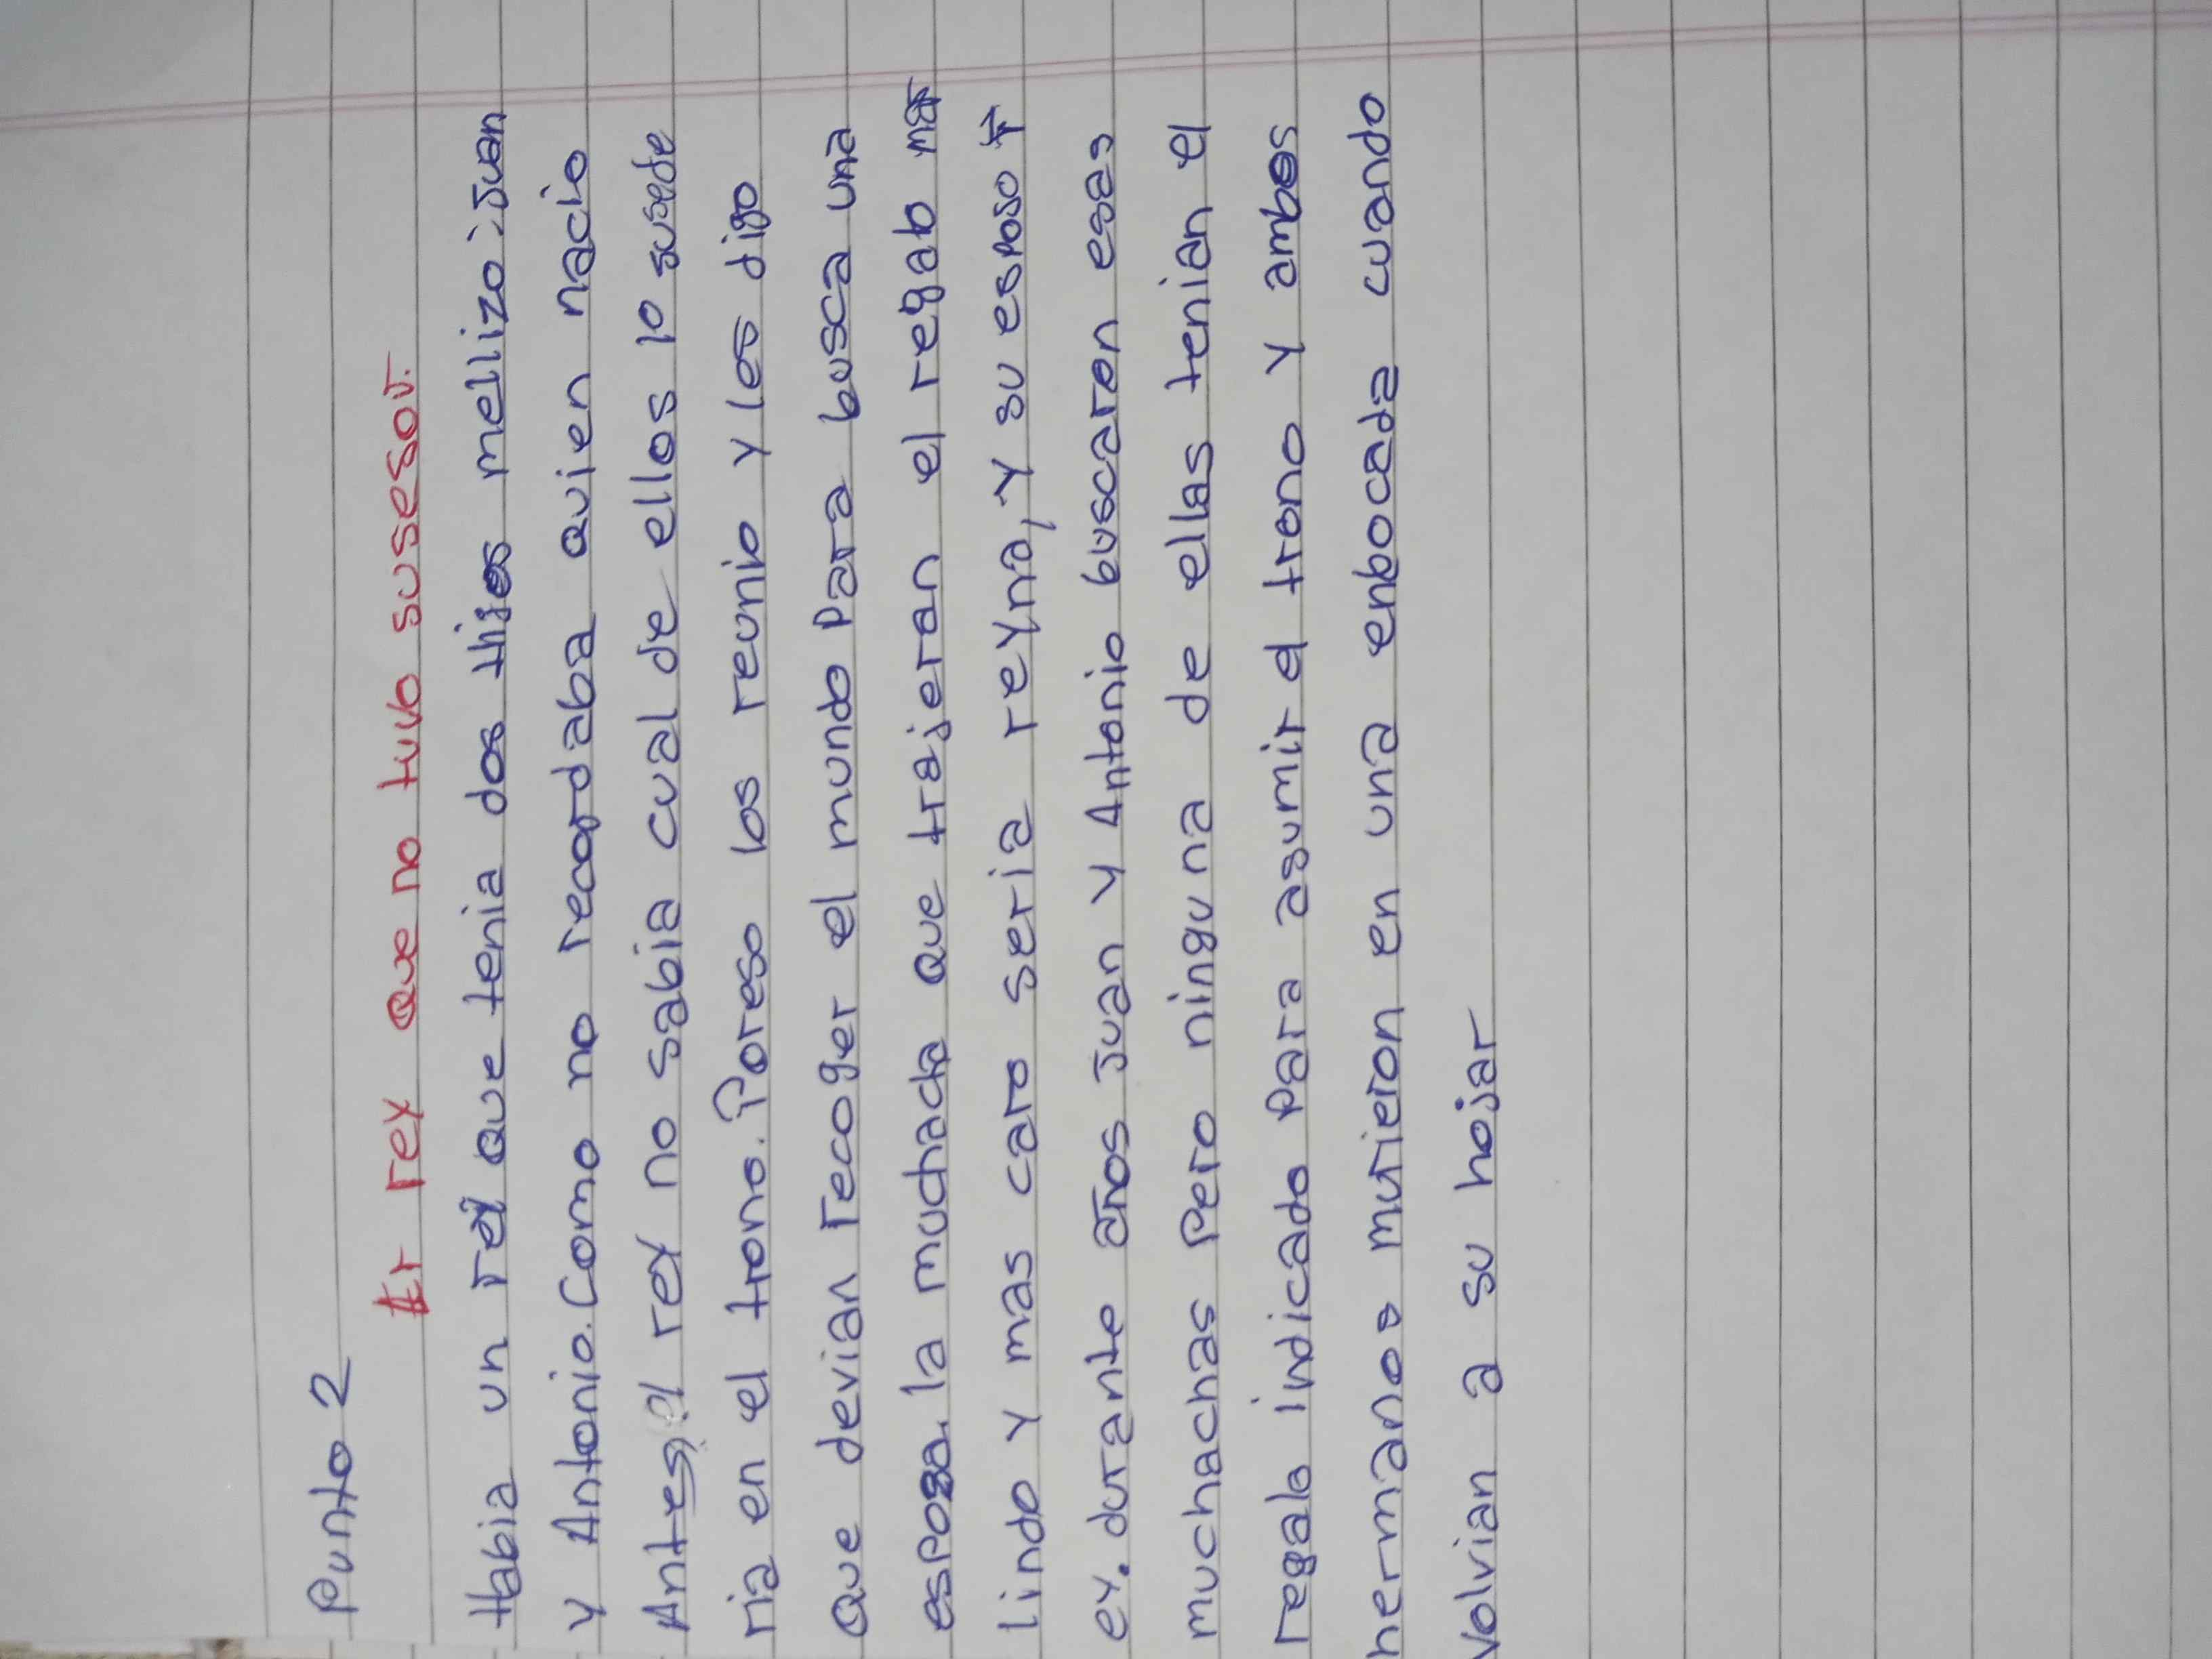 Punto 2
Er rey que no tuvo susesor.
Habia un rey que tenia dos Hijos mellizo: Juan
y Antonio. Como no recordaba quien nacio
Antes, el rey no sabia cual de ellos lo susede
ria en el trono. Poreso los reunio y les digo
que devian recoger el mundo para busca una
esposa. la muchacha que trajeran el regalo mas
lindo y mas caro seria reyna, y su esposo r
ey. durante años Juan y Antonio buscaron esas
muchachas pero ninguna de ellas tenian el
regalo indicado para asumir el trono y ambos
hermanos murieron en una enbocada cuando
volvian a su hojar